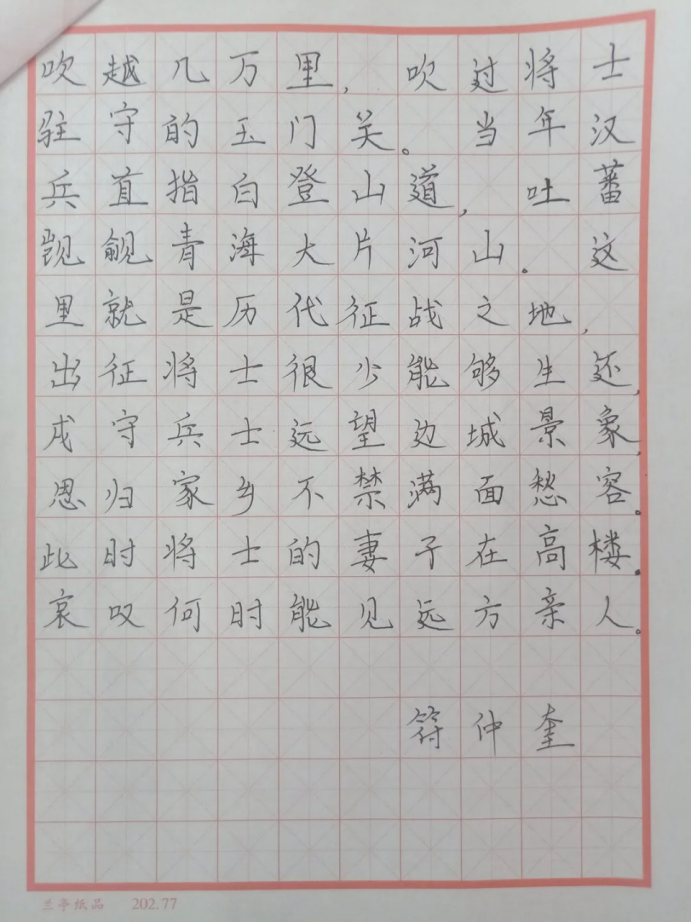 吹越几万里，吹过将士
驻守的玉门关。当年汉
兵直指白登山道，吐蕃
觊觎青海大片河山。这
里就是历代征战之地，
出征将士很少能够生还，
戍守兵士远望边城景象，
思归家乡不禁满面愁容。
此时将士的妻子在高楼。
哀叹何时能见远方亲人。
符仲奎
兰亭纸品 202.77